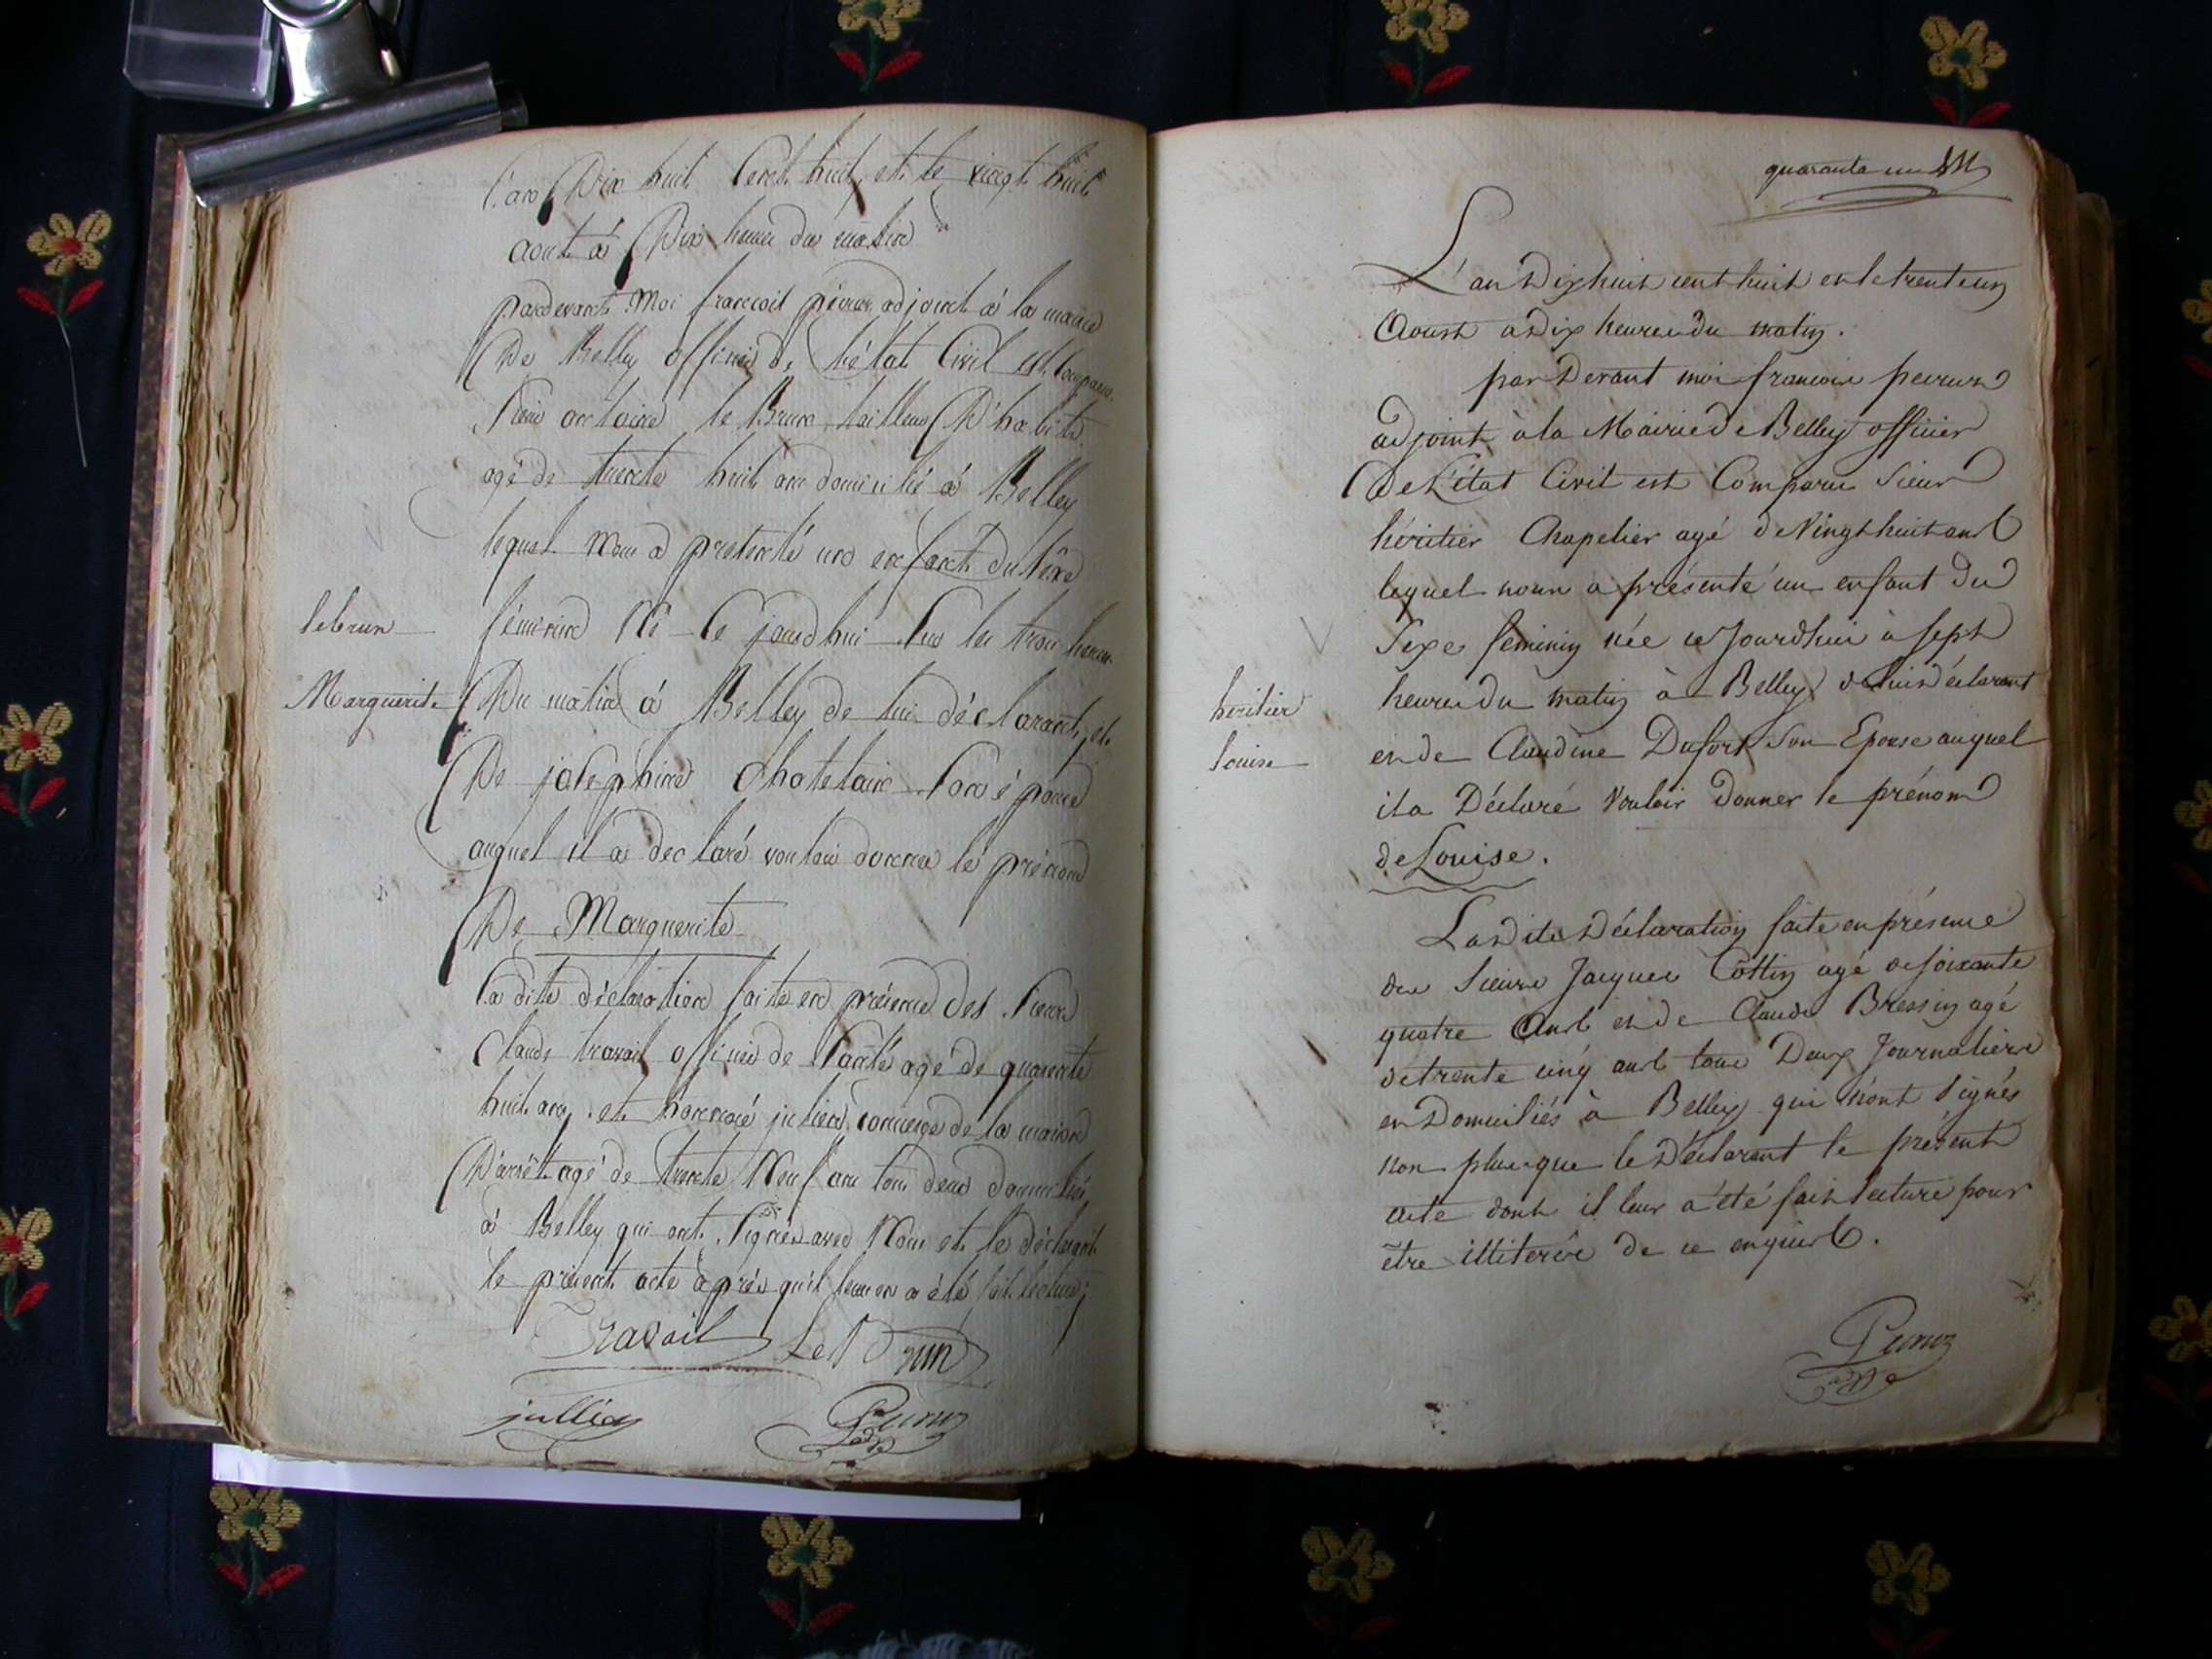 L'an Dix huit Cent huit et le vingt huit
aout à Dix heures du matin
pardevant Moi francois peuruz adjoint à la mairie
De Belley officier de l'état Civil est comparu
Sieur antoine le Brun tailleur D'habits
agé de trente huit ans domicilié à Belley
lequel Nous a presenté un enfant du sexe
lebrun
féminin Né Ce jourdhui Sur les trois heures
Marguerite
Du matin à Belley de lui déclarant et
De josephine Chatelain Son épouse
auquel il a declaré vouloir donner le prénom
De Marguerite
La dite déclaration faite en présence des Sieurs
Claude travail officier de Santé agé de quarante
huit ans et honnoré julien concierge de la maison
D'arrêt agé de trente Neuf ans tous deux domiciliés
à Belley qui ont Signés avec Nous et le déclarant
le present acte après qu'il leur en a été fait lecture
Travail Le Brun
jullien
Peuruz
quarante un
L'an Dix huit cent huit et le trente un
Aoust à Dix heures du matin.
par Devant moi francois peuruz
adjoint à la Mairie de Belley officier
de L'état Civil est Comparu Sieur
héritier Chapelier agé de Vingt huit ans
lequel nous a présenté un enfant du
Sexe feminin née ce Jourdhui à Sept
heritier
heures du matin à Belley de lui déclarant
Louise
et de Claudine Dufort Son Epouse auquel
il a Déclaré Vouloir Donner le prénom
de Louise.
La Dite Déclaration faite en présence
des Sieurs Jacques Cottin agé de Soixante
quatre Ans et de Claude Bressin agé
de trente cinq ans tous Deux Journaliers
et Domiciliés à Belley qui n'ont Signés
non plus que le Déclarant le présent
acte dont il leur a été fait lecture pour
être illiterés de ce enquis.
Peuruz